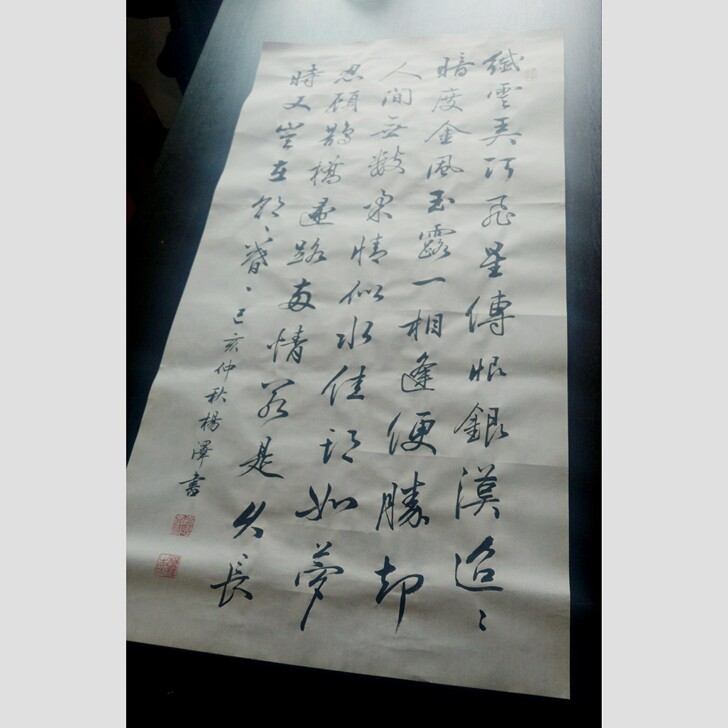 纖雲弄巧飛星傳恨銀漢迢〻
暗度金風玉露一相逢便勝却
人間無數柔情似水佳期如夢
忍顧鵲橋歸路兩情若是久長
時又豈在朝〻暮〻己亥仲秋楊澤書